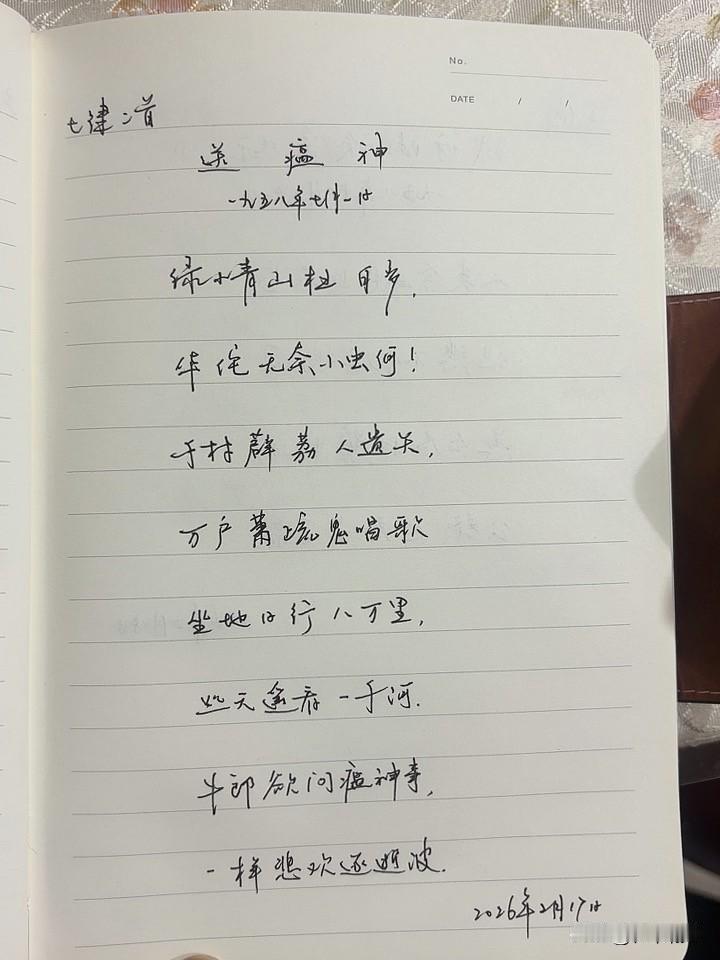 No.
DATE / /
七律二首
送瘟神
一九五八年七月一日
绿水青山枉自多,
华佗无奈小虫何!
千村薜荔人遗矢,
万户萧疏鬼唱歌
坐地日行八万里,
巡天遥看一千河.
牛郎欲问瘟神事,
一样悲欢逐逝波.
2026年2月17日